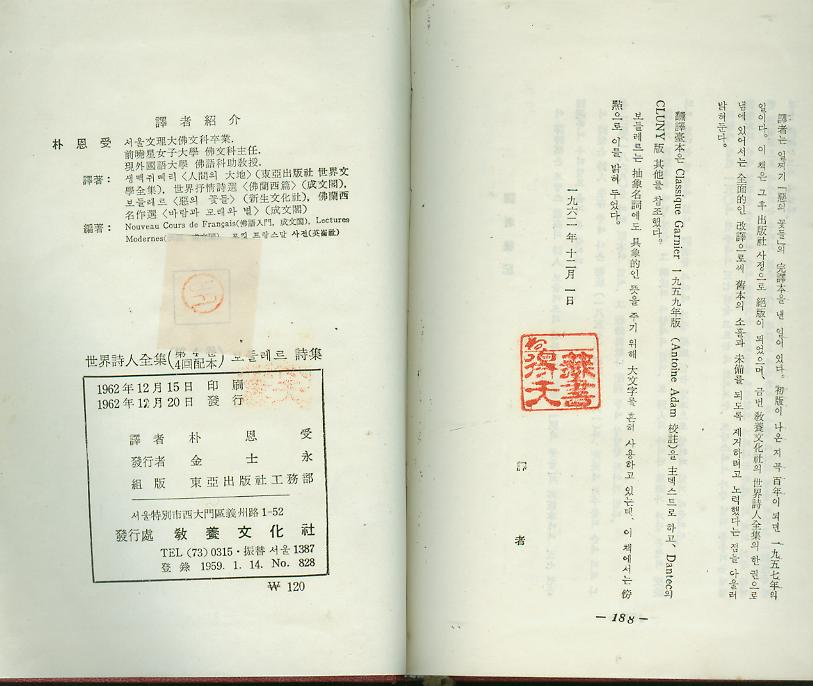 譯者紹介
朴恩受 서울文理大佛文科卒業.
前曉星女子大學 佛文科主任.
現外國語大學 佛語科助敎授.
譯著: 생떽쥐뻬리〈人間의 大地〉(東亞出版社 世界文
學全集), 世界抒情詩選〈佛蘭西篇〉(成文閣),
보들레르〈惡의 꽃들〉(新生文化社), 佛蘭西
名作選〈바람과 모래와 별〉(成文閣)
編著: Nouveau Cours de Français(佛語入門, 成文閣), Lectures
Modernes(佛 成文閣), 포켙 프랑스말 사전(英崙社)
世界詩人全集(第4卷 4回配本) 보들레르 詩集
1962年12月15日 印刷
1962年12月20日 發行
譯者 朴恩受
發行者 金士永
組版 東亞出版社工務部
서울特別市西大門區義州路1-52
發行處 敎養文化社
TEL (73) 0315·振替 서울 1387
登錄 1959. 1. 14. No. 828
₩ 120
譯者는 일찌기 「惡의 꽃들」의 完譯本을 낸 일이 있다. 初版이 나온 지 꼭 百年이 되던 一九五七年의
일이다. 이 책은 그후 出版社 사정으로 絕版이 되었으며, 금번 敎養文化社의 世界詩人全集의 한 권으로
냄에 있어서는 全面的인 改譯으로써 舊本의 소홀과 未備를 되도록 제거하려고 노력했다는 점을 아울러
밝혀둔다.
飜譯臺本은 Classique Garnier 一九五九年版 (Antoine Adam 校註)을 主텍스트로 하고, Dantec의
CLUNY版 其他를 참조했다.
보들레르는 抽象名詞에도 具象的인 뜻을 주기 위해 大文字를 흔히 사용하고 있는데, 이 책에서는 傍
點으로 이를 밝혀 두었다.
一九六二年 十二月 一日
譯者
— 188 —